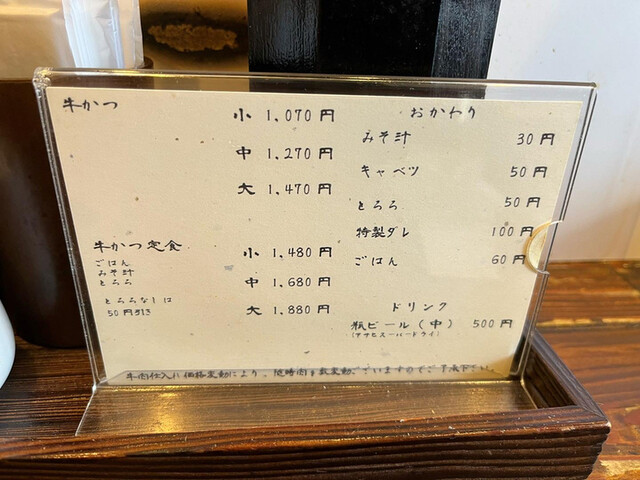 牛かつ
小 1,070 円
中 1,270 円
大 1,470 円
牛かつ定食
ごはん
みそ汁
とろろ
とろろなしは
50円引き
小 1,480 円
中 1,680 円
大 1,880 円
おかわり
みそ汁 30 円
キャベツ 50 円
とろろ 50 円
特製ダレ 100 円
ごはん 60 円
ドリンク
瓶ビール(中) 500 円
(アサヒスーパードライ)
牛肉仕入れ価格変動により、随時肉g数変動ございますのでご了承下さい。